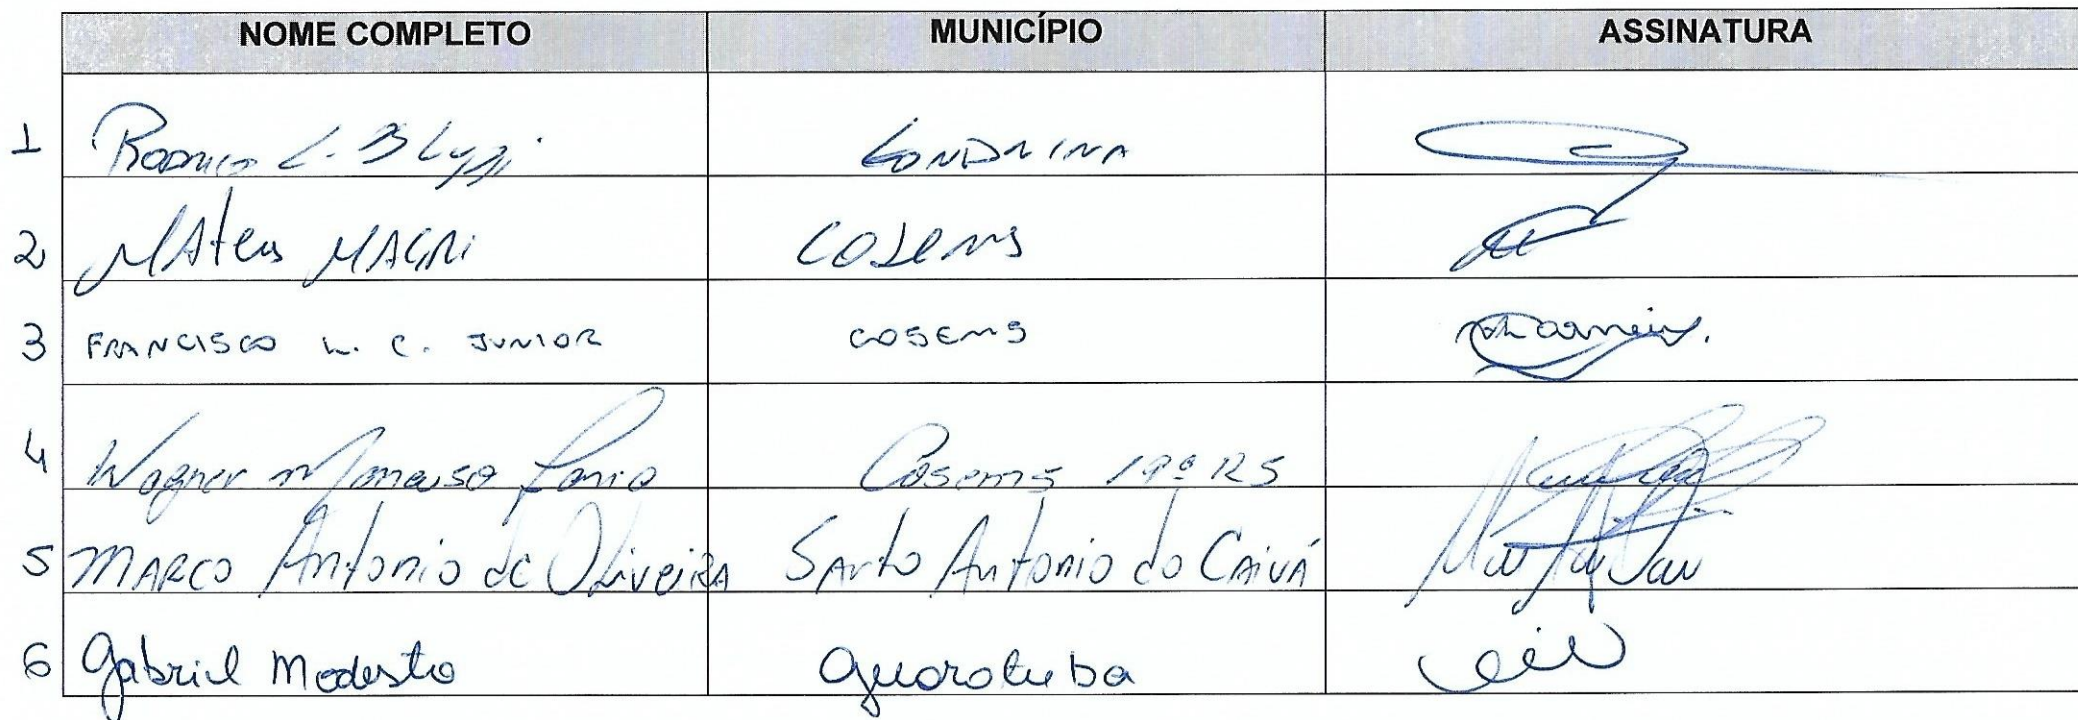 NOME COMPLETO MUNICÍPIO ASSINATURA
1 Rodrigo L. B LONDRINA
2 MAteus MAGRi COSEMS
3 FRANCISCO W. C. JUNIOR COSEMS
4 Wagner Cosems 19ª RS
5 MARCO Antonio de OLiveiRA SAnto Antonio do CAiuÁ
6 Gabriel Modesto Guaratuba